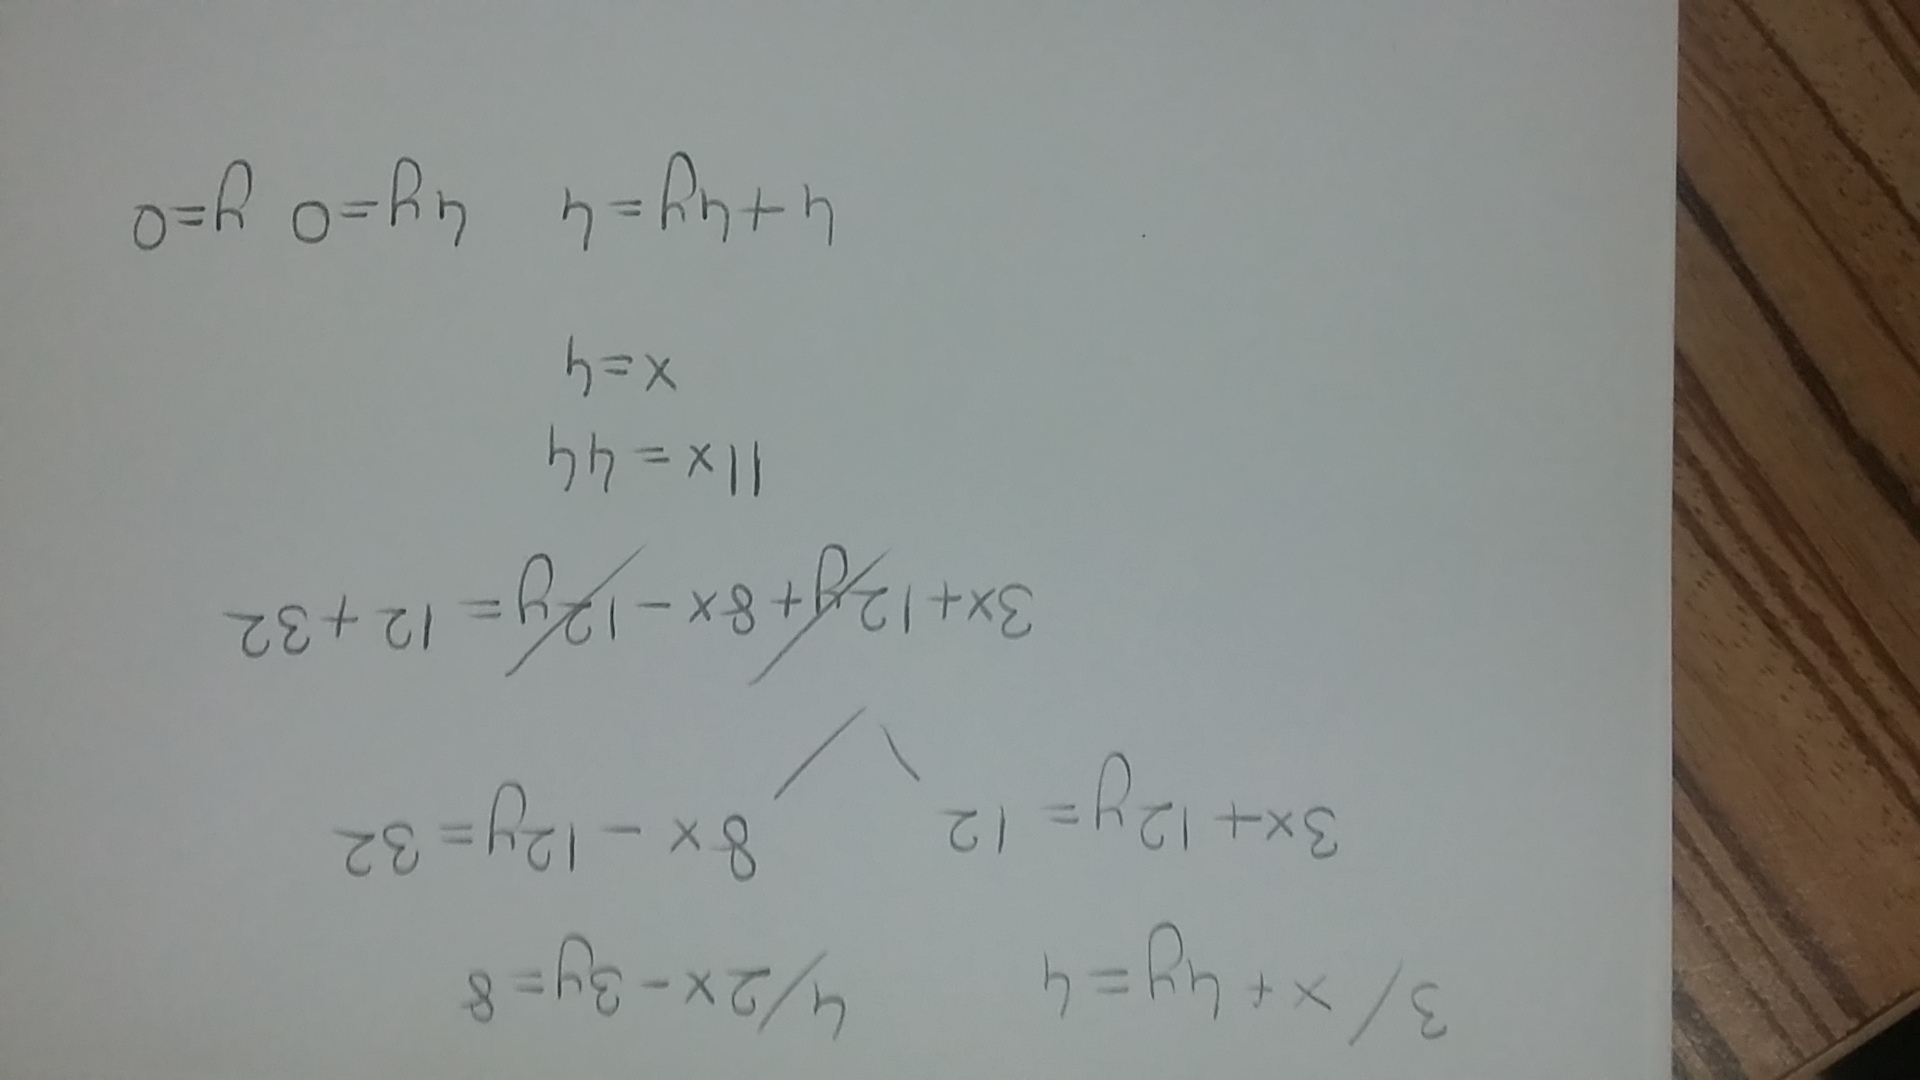 3/ x + 4y = 4 4/ 2x - 3y = 8
3x + 12y = 12 8x - 12y = 32
3x + 12y + 8x - 12y = 12 + 32
11x = 44
x = 4
4 + 4y = 4 4y = 0 y = 0